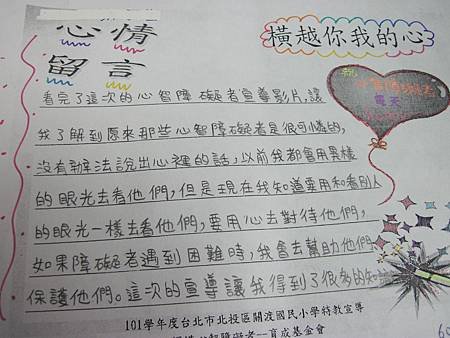 心情
橫越你我的心
留言
看完了這次的心智障礙者宣導影片,讓
我了解到原來那些心智障礙者是很可憐的,
沒有辦法說出心裡的話,以前我都會用異樣
的眼光去看他們,但是現在我知道要用和看別人
的眼光一樣去看他們,要用心去對待他們,
如果障礙者遇到困難時,我會去幫助他們
保護他們。這次的宣導讓我得到了很多的知
101學年度台北市北投區關渡國民小學特教宣導
智障礙者--育成基金會